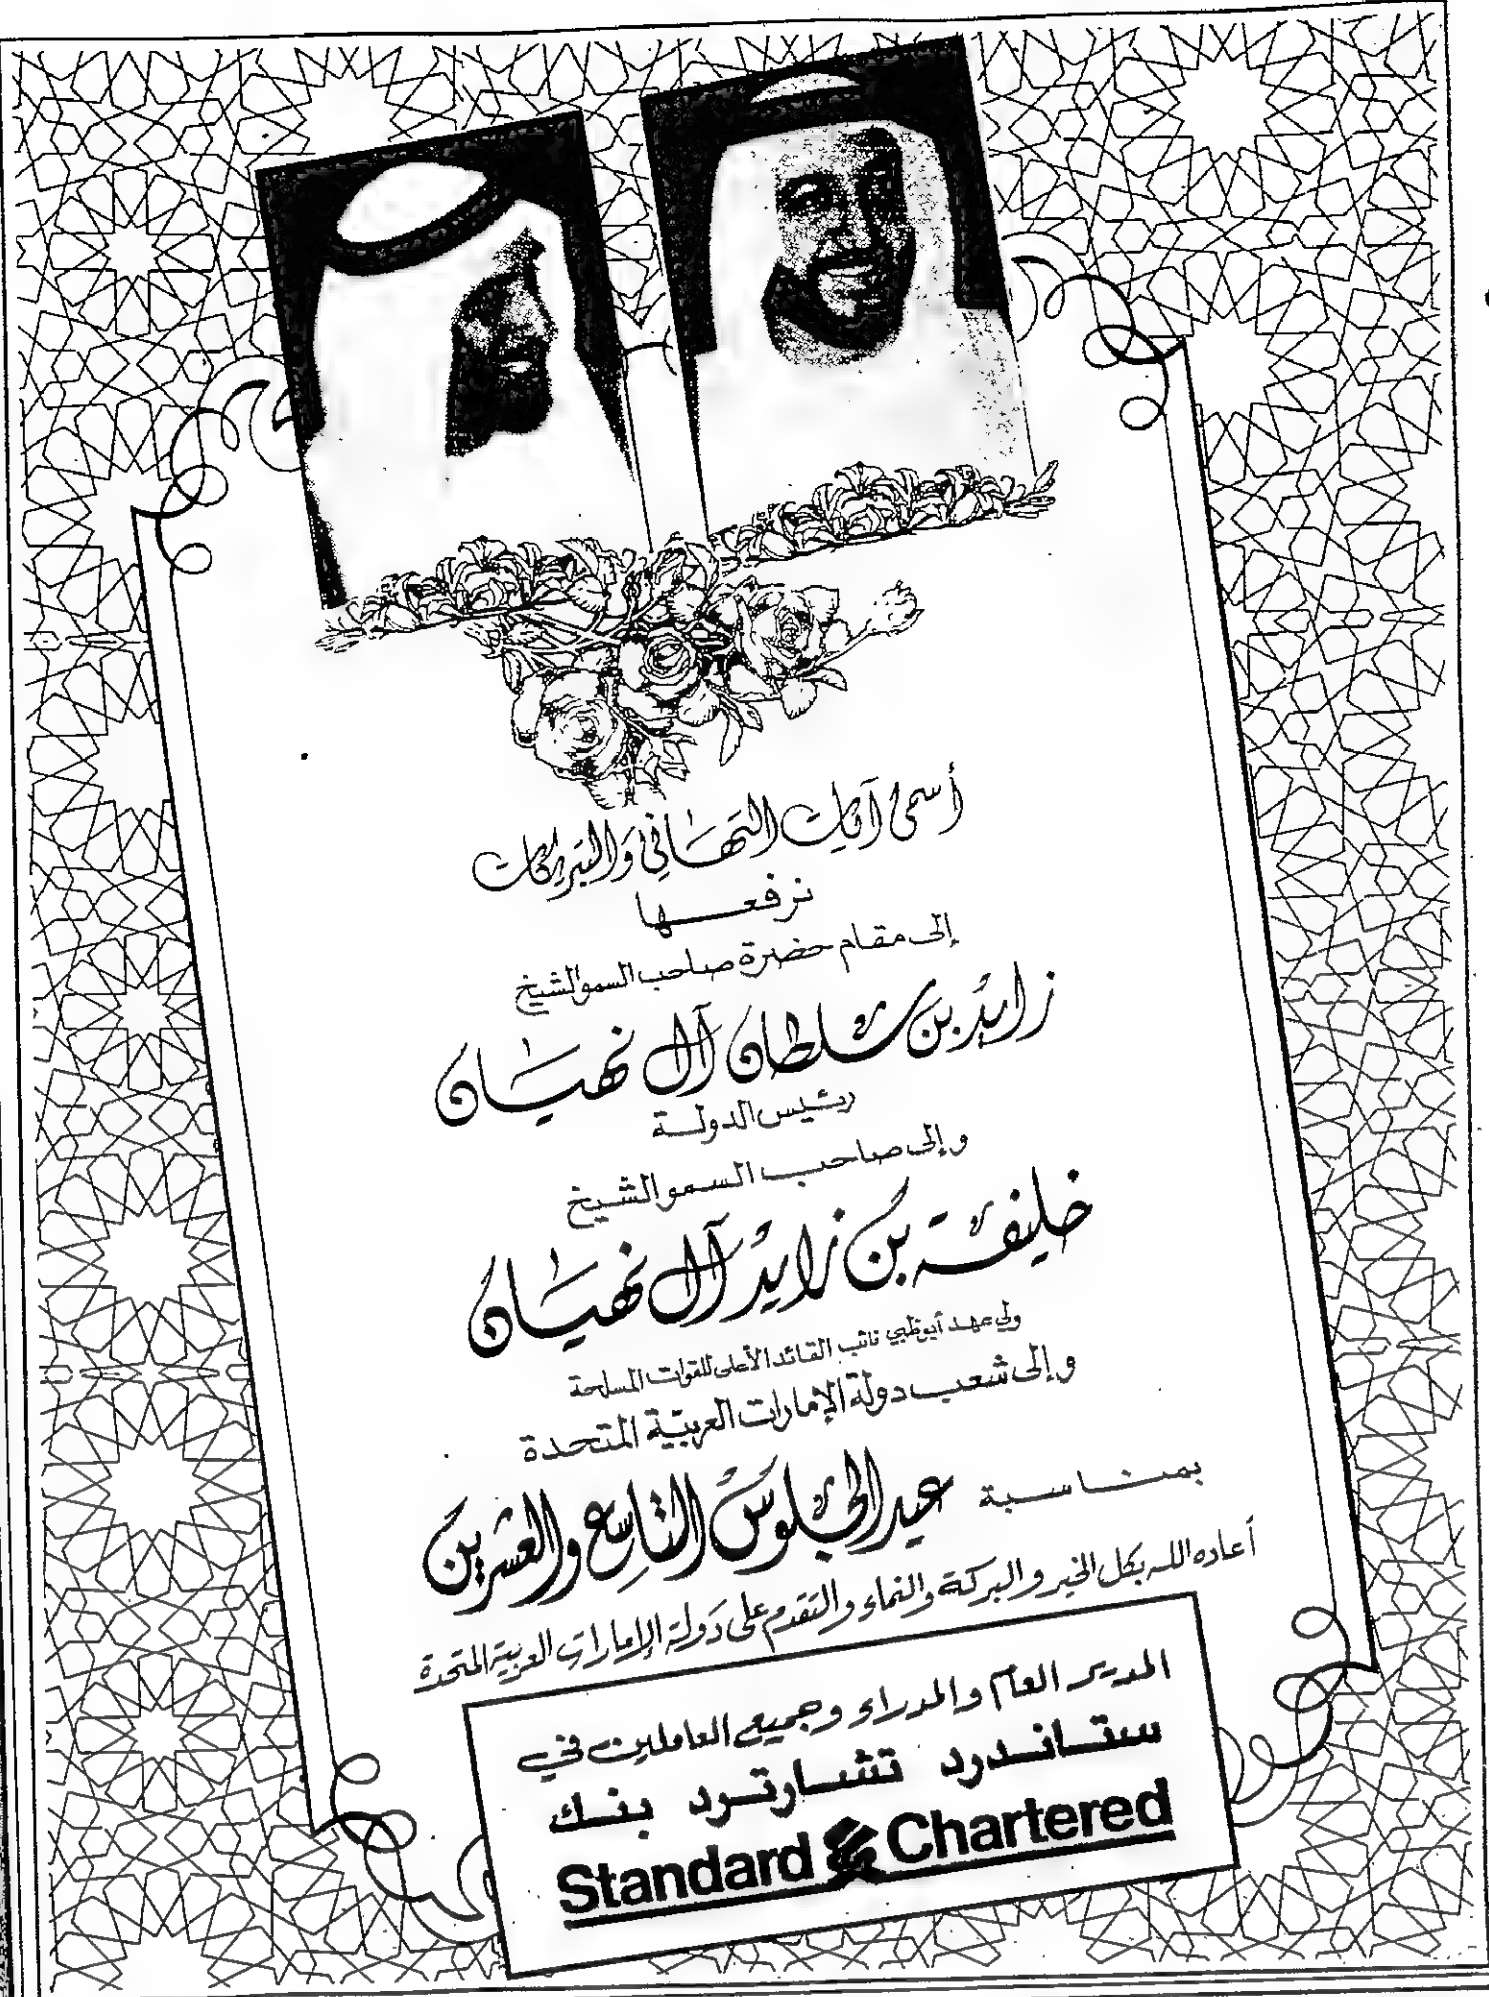 أسمى آيات التهاني والتبريكات
نرفعها
إلى مقام حضرة صاحب السمو الشيخ
زايد بن سلطان آل نهيان
رئيس الدولة
وإلى صاحب السمو الشيخ
خليفة بن زايد آل نهيان
ولي عهد أبوظبي نائب القائد الأعلى للقوات المسلحة
وإلى شعب دولة الإمارات العربية المتحدة
بمناسبة عيد الجلوس التاسع والعشرين
أعاده الله بكل الخير والبركة والنماء والتقدم على دولة الإمارات العربية المتحدة
المدير العام والمدراء وجميع العاملين في
ستاندرد تشارترد بنك
Standard Chartered